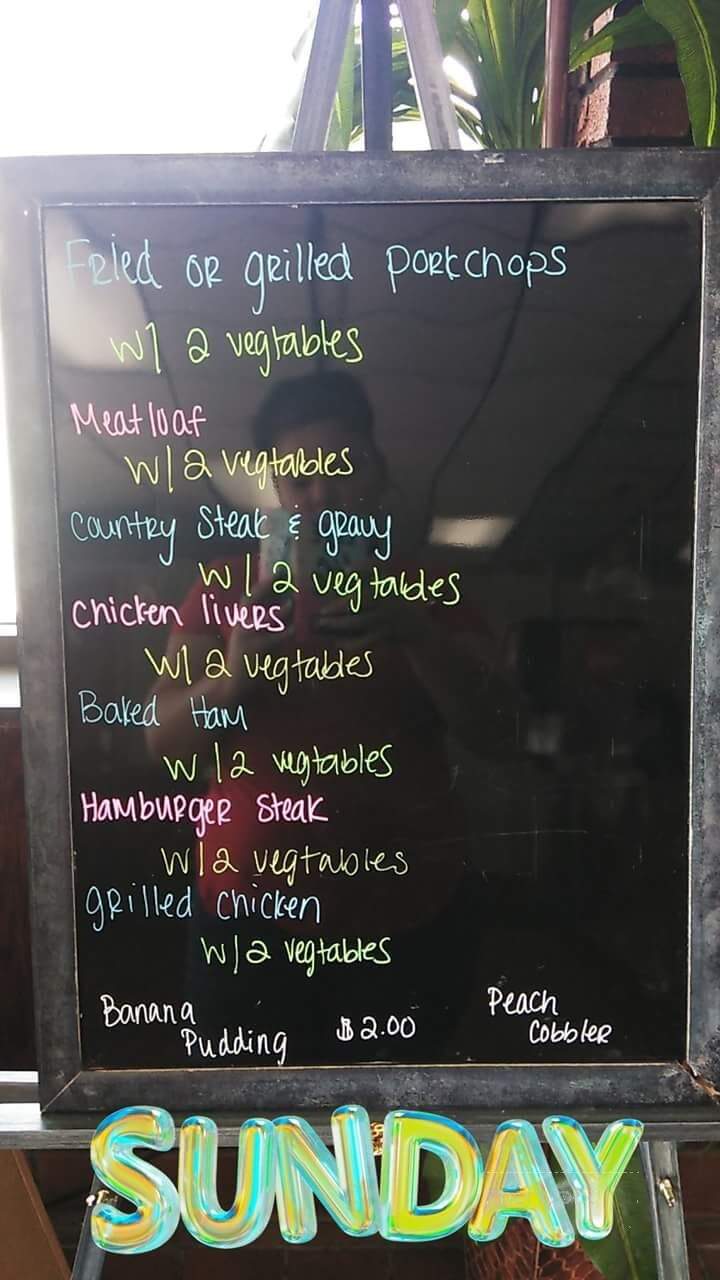 Fried or grilled porkchops
w/ 2 vegtables
Meatloaf
w/ 2 vegtables
Country Steak & gravy
w/ 2 vegtables
Chicken livers
w/ 2 vegtables
Baked Ham
w/2 vegtables
Hamburger Steak
w/2 vegtables
grilled chicken
w/2 vegtables
Banana Pudding $2.00 Peach Cobbler
SUNDAY